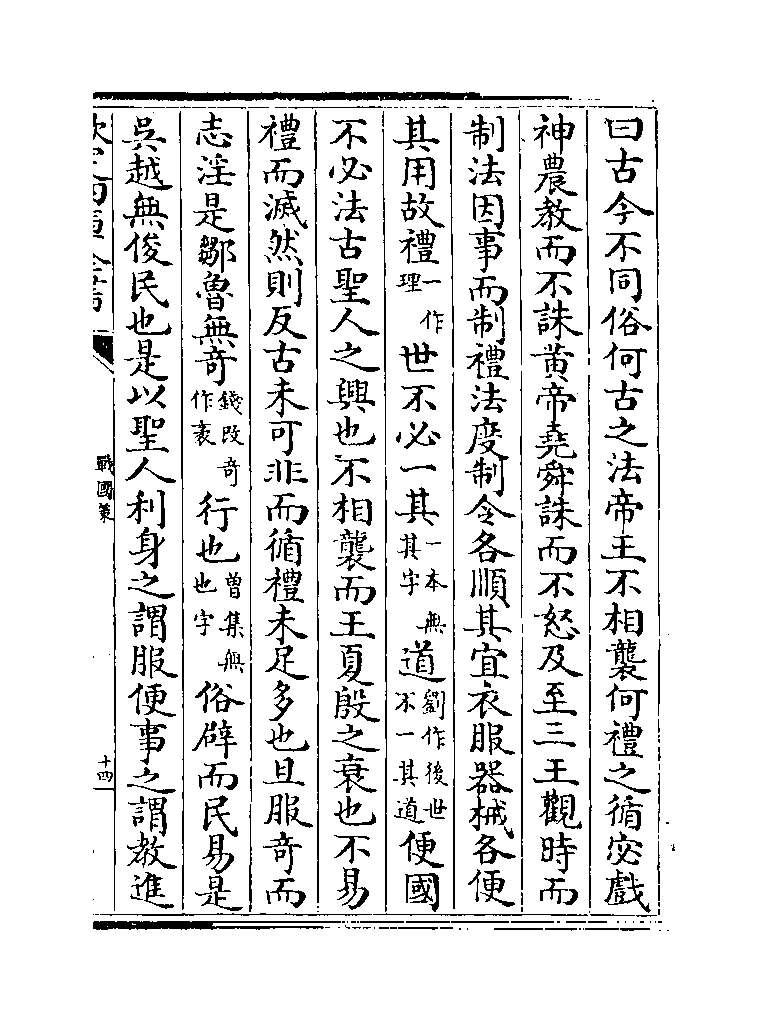 曰古今不同俗何古之法帝王不相襲何禮之循宓戲
神農教而不誅黄帝堯舜誅而不怒及至三王觀時而
制法因事而制禮法度制令各順其宜衣服器械各便
其用故禮一作理世不必一其一本無其字道劉作後世不一其道便國
不必法古聖人之興也不相襲而王夏殷之衰也不易
禮而滅然則反古未可非而循禮未足多也且服奇而
志淫是鄒魯無奇錢改奇作衺行也曽集無也字俗辟而民易是
吳越無俊民也是以聖人利身之謂服便事之謂教進
欽定四庫全書
戰國策
十四